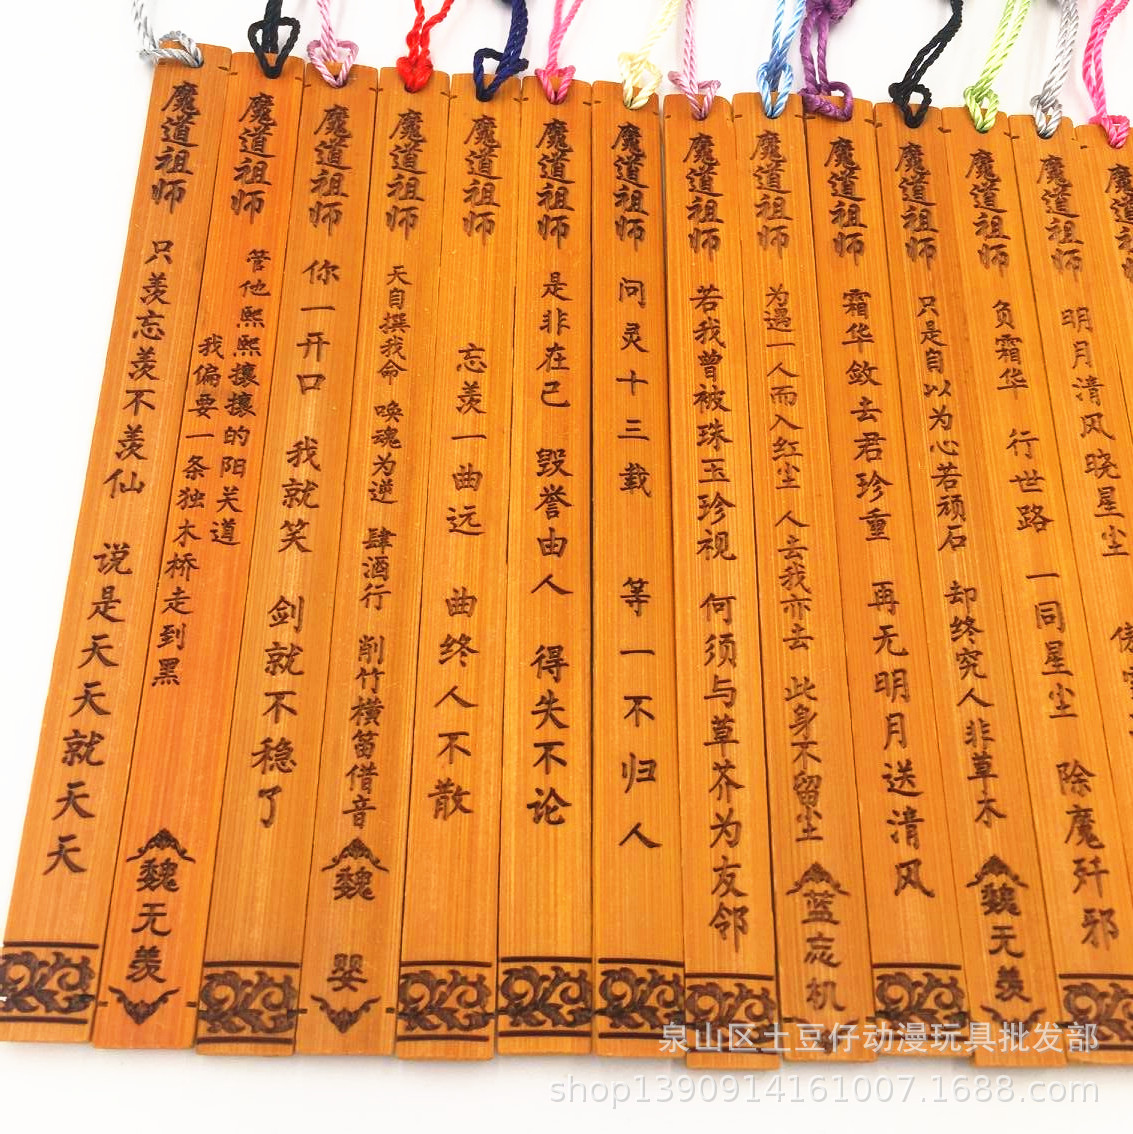 魔道祖师
只羡忘羡不羡仙
说是天天就天天
魔道祖师
管他熙熙攘攘的阳关道
我偏要一条独木桥走到黑
魏无羡
魔道祖师
你一开口
我就笑
剑就不稳了
魔道祖师
天自撰我命
唤魂为逆
肆酒行
削竹横笛借音
魏婴
魔道祖师
忘羡一曲远
曲终人不散
魔道祖师
是非在己
毁誉由人
得失不论
魔道祖师
问灵十三载
等一不归人
魔道祖师
若我曾被珠玉珍视
何须与草芥为友邻
魔道祖师
为遇一人而入红尘
人去我亦去
此身不留尘
蓝忘机
魔道祖师
霜华敛去君珍重
再无明月送清风
魔道祖师
只是自以为心若顽石
却终究人非草木
魏无羡
魔道祖师
负霜华
行世路
一同星尘
除魔歼邪
魔道祖师
明月清风晓星尘
魔道祖师
泉山区土豆仔动漫玩具批发部
shop1390914161007.1688.com